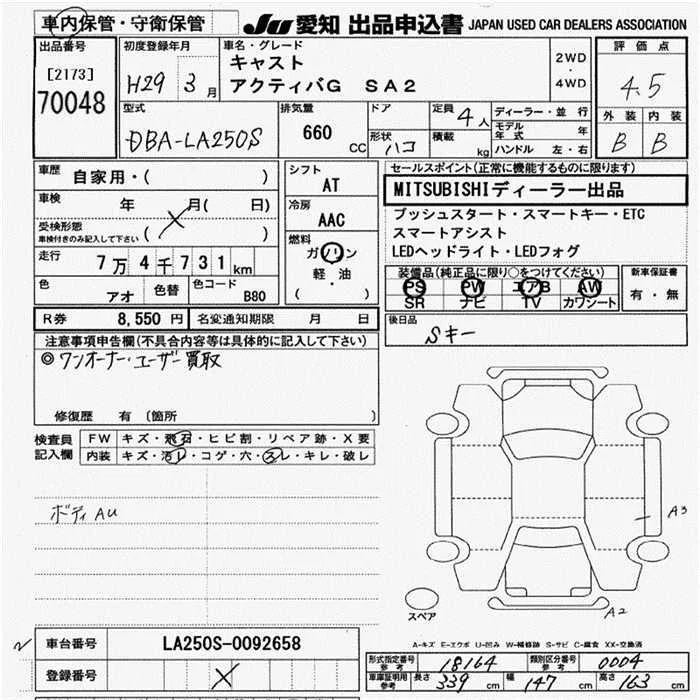 車内保管・守衛保管
JU 愛知 出品申込書 JAPAN USED CAR DEALERS ASSOCIATION
出品番号
[2173]
70048
初度登録年月
H29 3月
車名・グレード
キャスト
アクティバG SA2
2WD
・
4WD
評価点
4.5
外装 内装
B B
型式
DBA-LA250S
排気量
660
CC
ドア
形状 ハコ
定員 4人
積載 kg
ディーラー・並行
モデル年式 年
ハンドル 左・右
車歴
自家用・( )
車検
年 月( 日)
受検形態
車検付きのみ記入して下さい ( )
走行
7万4千731km
色
アオ
色替
色コード
B80
シフト
AT
冷房
AAC
燃料
ガソリン
軽・油
( )
セールスポイント(正常に機能するものに限ります)
MITSUBISHIディーラー出品
プッシュスタート・スマートキー・ETC
スマートアシスト
LEDヘッドライト・LEDフォグ
装備品(純正品に限り○をつけてください)
PS PW エアB AW
SR ナビ TV カワシート
新車保証書
有・無
R券 8,550円 名変通知期限 月 日
後日品
Sキー
注意事項申告欄(不具合内容等は具体的に記入して下さい)
◎ワンオーナー・ユーザー買取
修復歴 有 〔箇所 〕
検査員
記入欄
FW キズ・飛石・ヒビ割・リペア跡・X要
内装 キズ・汚レ・コゲ・穴・スレ・キレ・破レ
ボディ AU
A3
スペア
A2
A-キズ E-エクボ U-凹み W-補修跡 S-サビ C-腐食 XX-交換済
車台番号 LA250S-0092658
登録番号
型式指定番号
参考 18164
類別区分番号
参考 0004
車庫証明用
参考
長さ 339 cm 幅 147 cm 高さ 163 cm